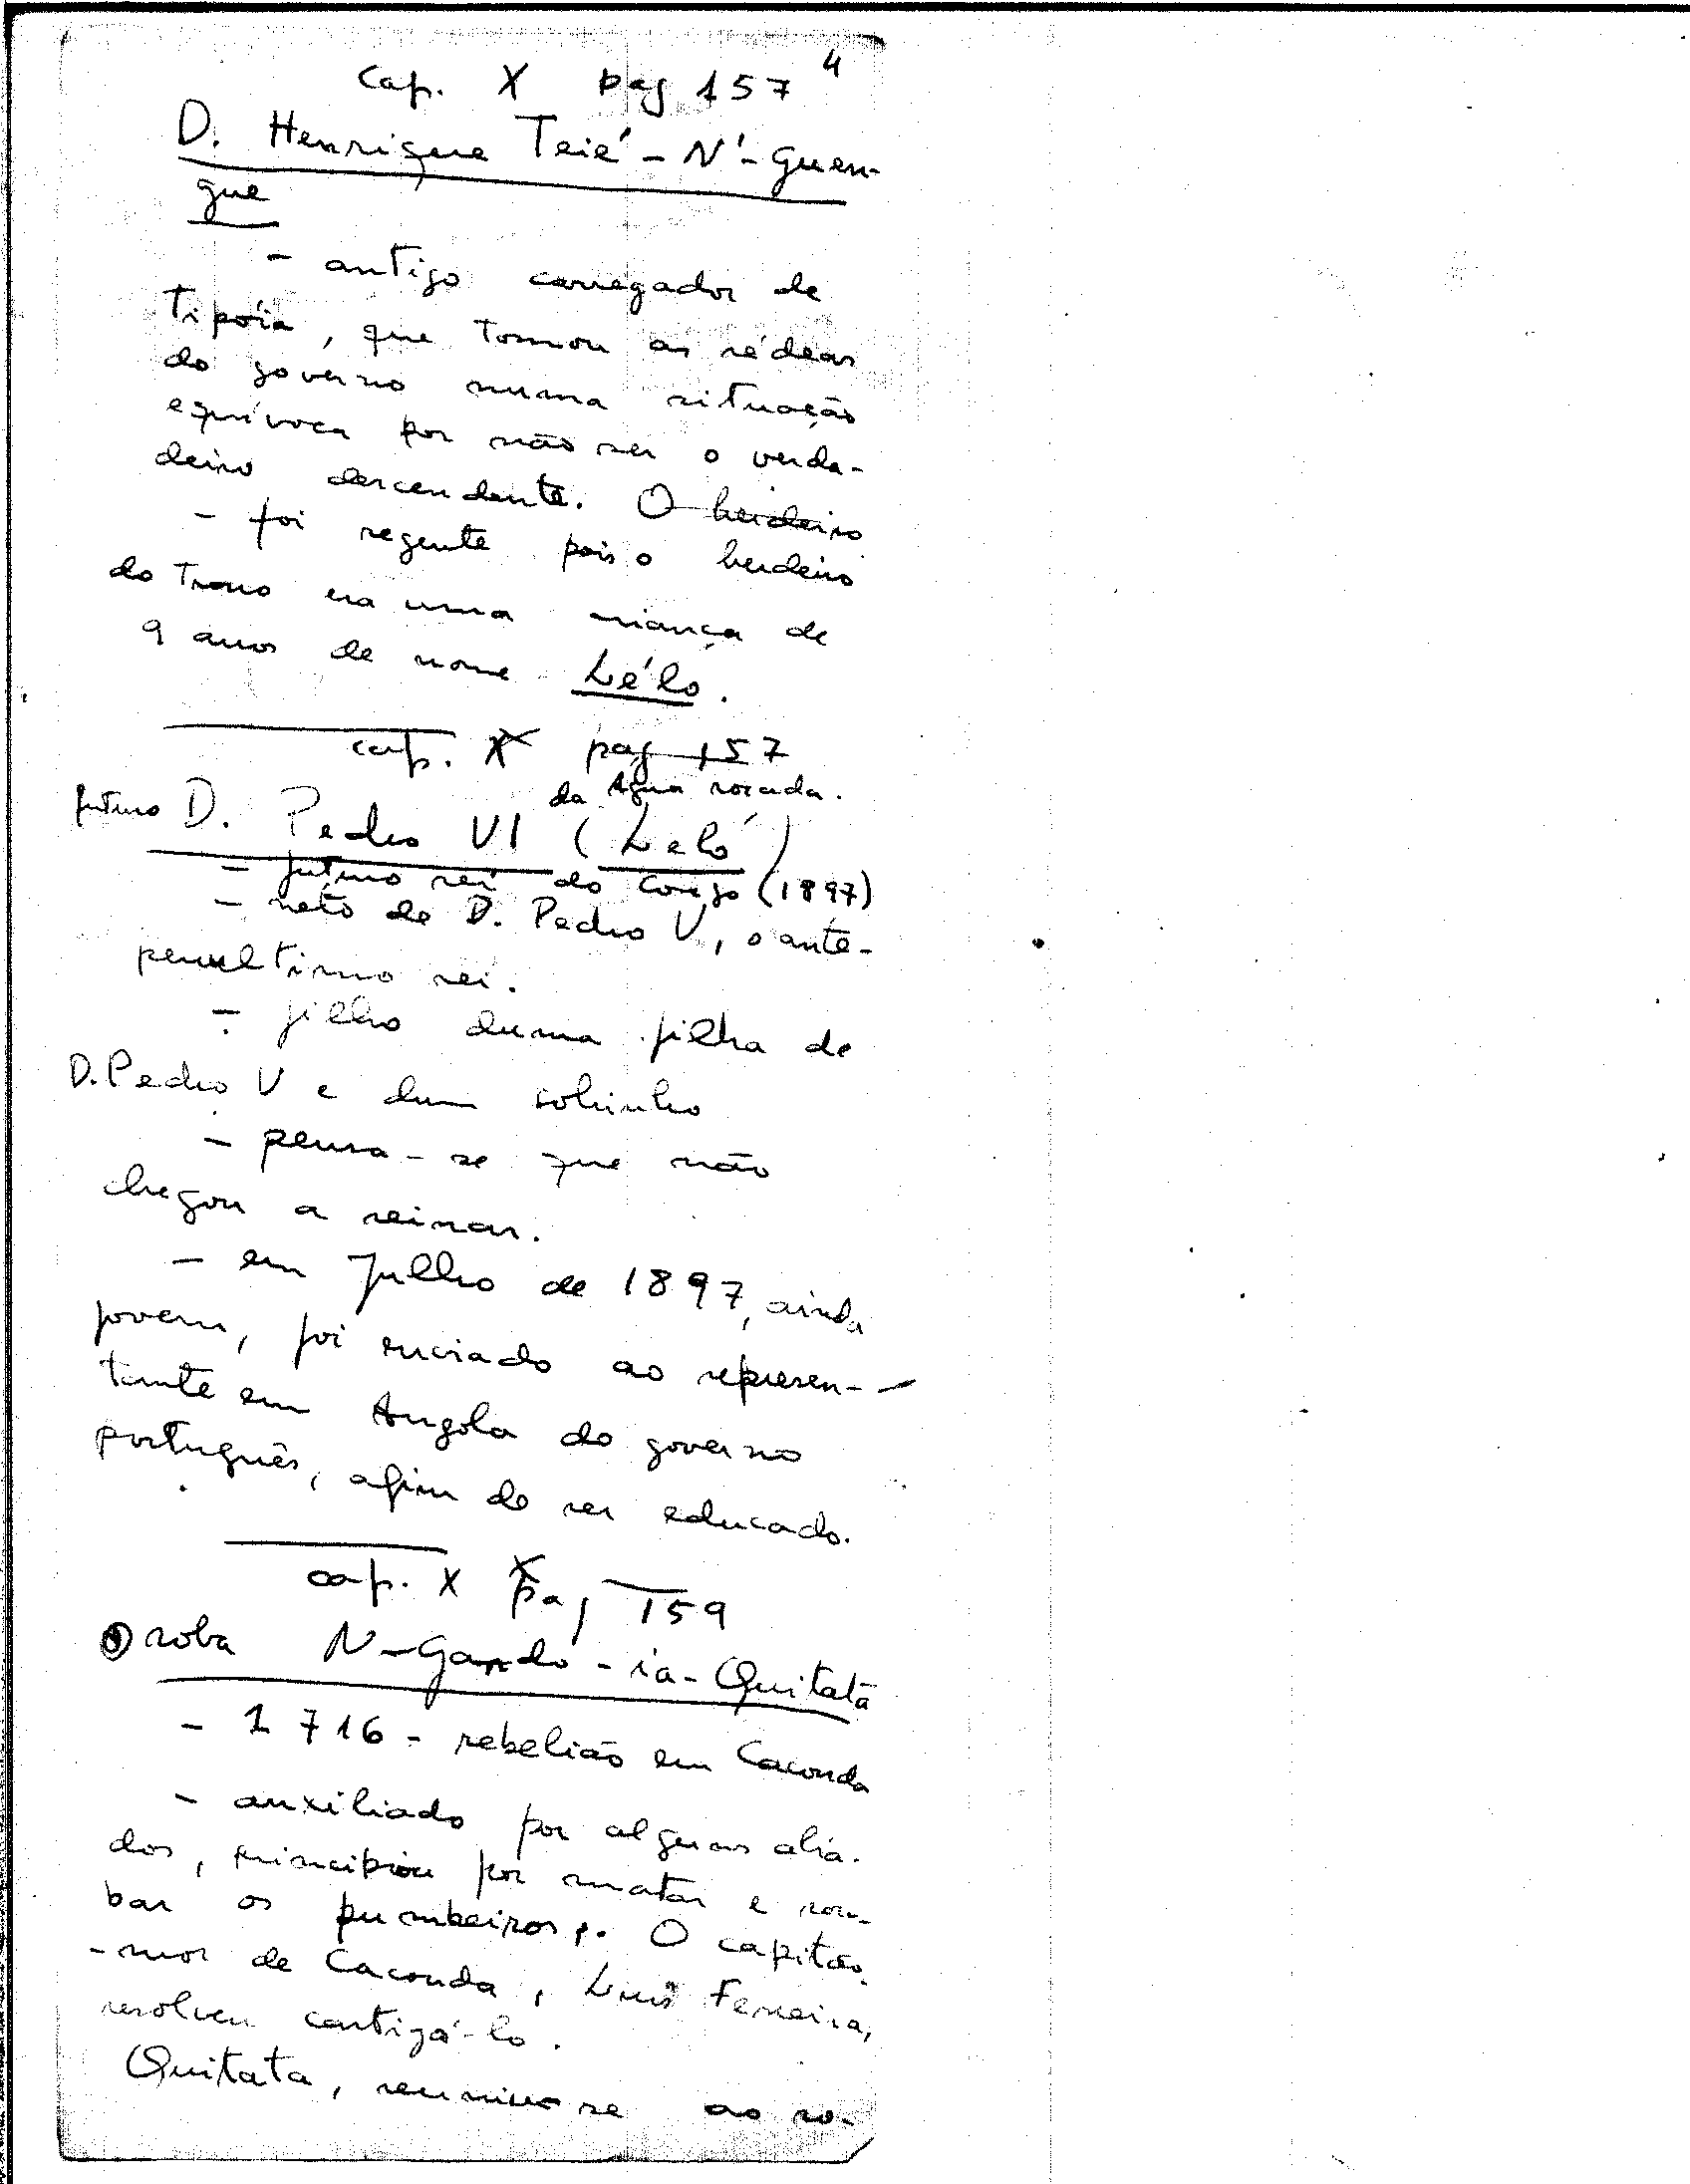 4
Cap. X pag 157
D. Henrique Teié - N'- Guen-
gue
- antigo carregador de
tipóia, que tomou as rédeas
do governo numa situação
equívoca por não ser o verda-
deiro descendente. O herdeiro
- foi regente pois o herdeiro
do trono era uma criança de
9 anos de nome Lélo.
cap. X pag 157
da Água rosada.
futuro D. Pedro VI (Leló)
- futuro rei do Congo (1897)
- neto de D. Pedro V, o ante-
penultimo rei.
- filho duma filha de
D. Pedro V e dum sobrinho
- pensa-se que não
chegou a reinar.
- em Julho de 1897, ainda
jovem, foi enviado ao represen-
tante em Angola do governo
português, afim de ser educado.
cap. X pag 159
O soba N-Gando - ia - Quitatã
- 1716 - rebelião em Caconda
- auxiliado por alguns alia-
dos, principiou por matar e rou-
bar os pumbeiros. O capitão
-mor de Caconda, Luís Ferreira,
resolveu castigá-lo.
Quitata, reuniu-se ao so-